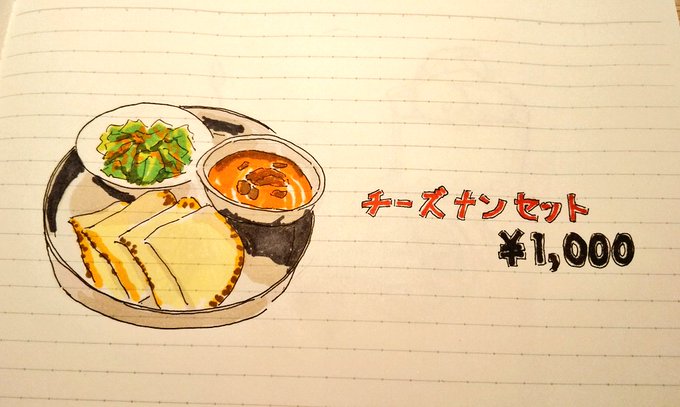 チーズナンセット
¥1,000